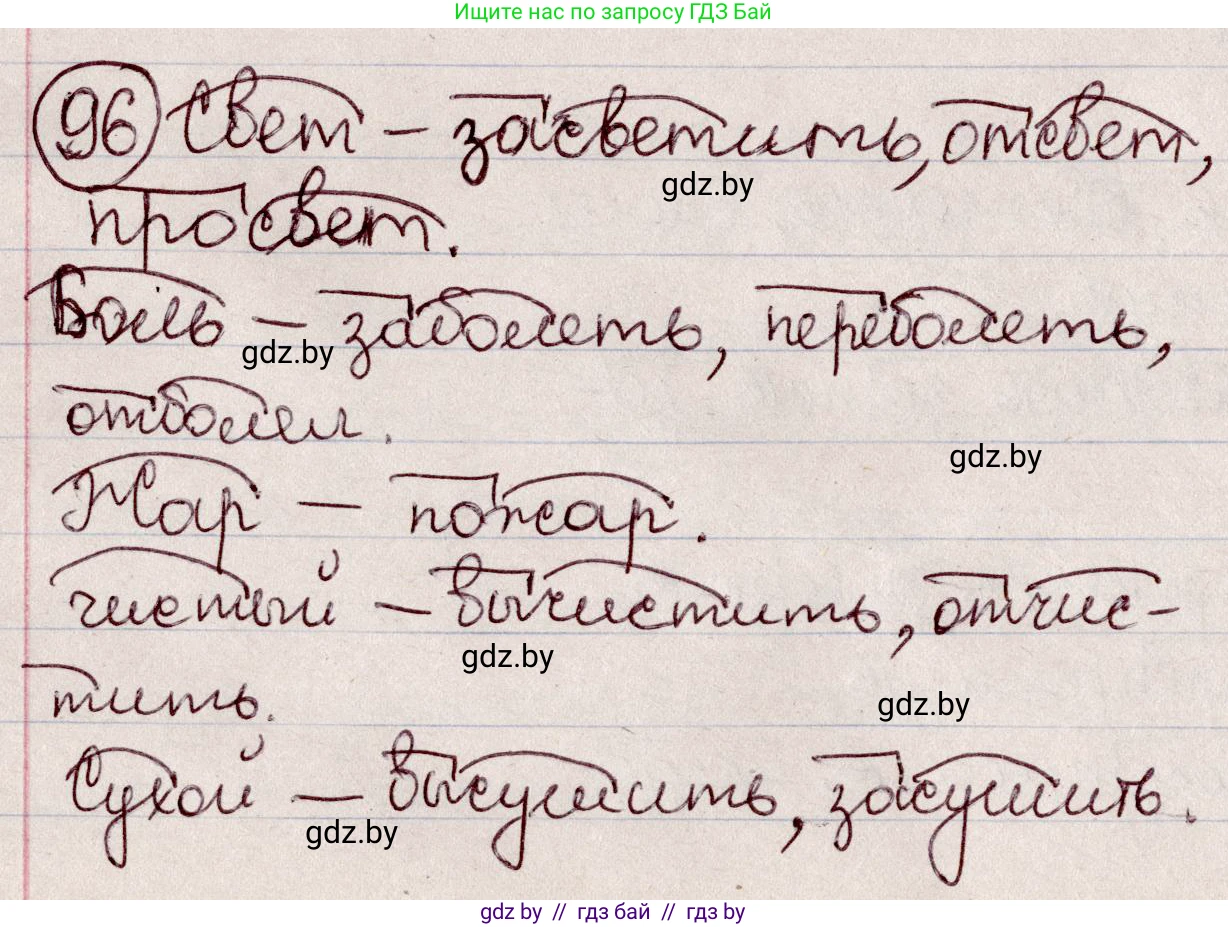 Ищите нас по запросу ГДЗ Бай
96 Свет – засветить, отсвет,
gdz.by
просвет.
Боль – заболеть, переболеть,
gdz.by
отболел.
gdz.by
Жар – пожар.
чистый – вычистить, отчис-
gdz.by
тить.
gdz.by
Сухой – высушить, засушить.
gdz.by
gdz.by // гдз бай // гдз by